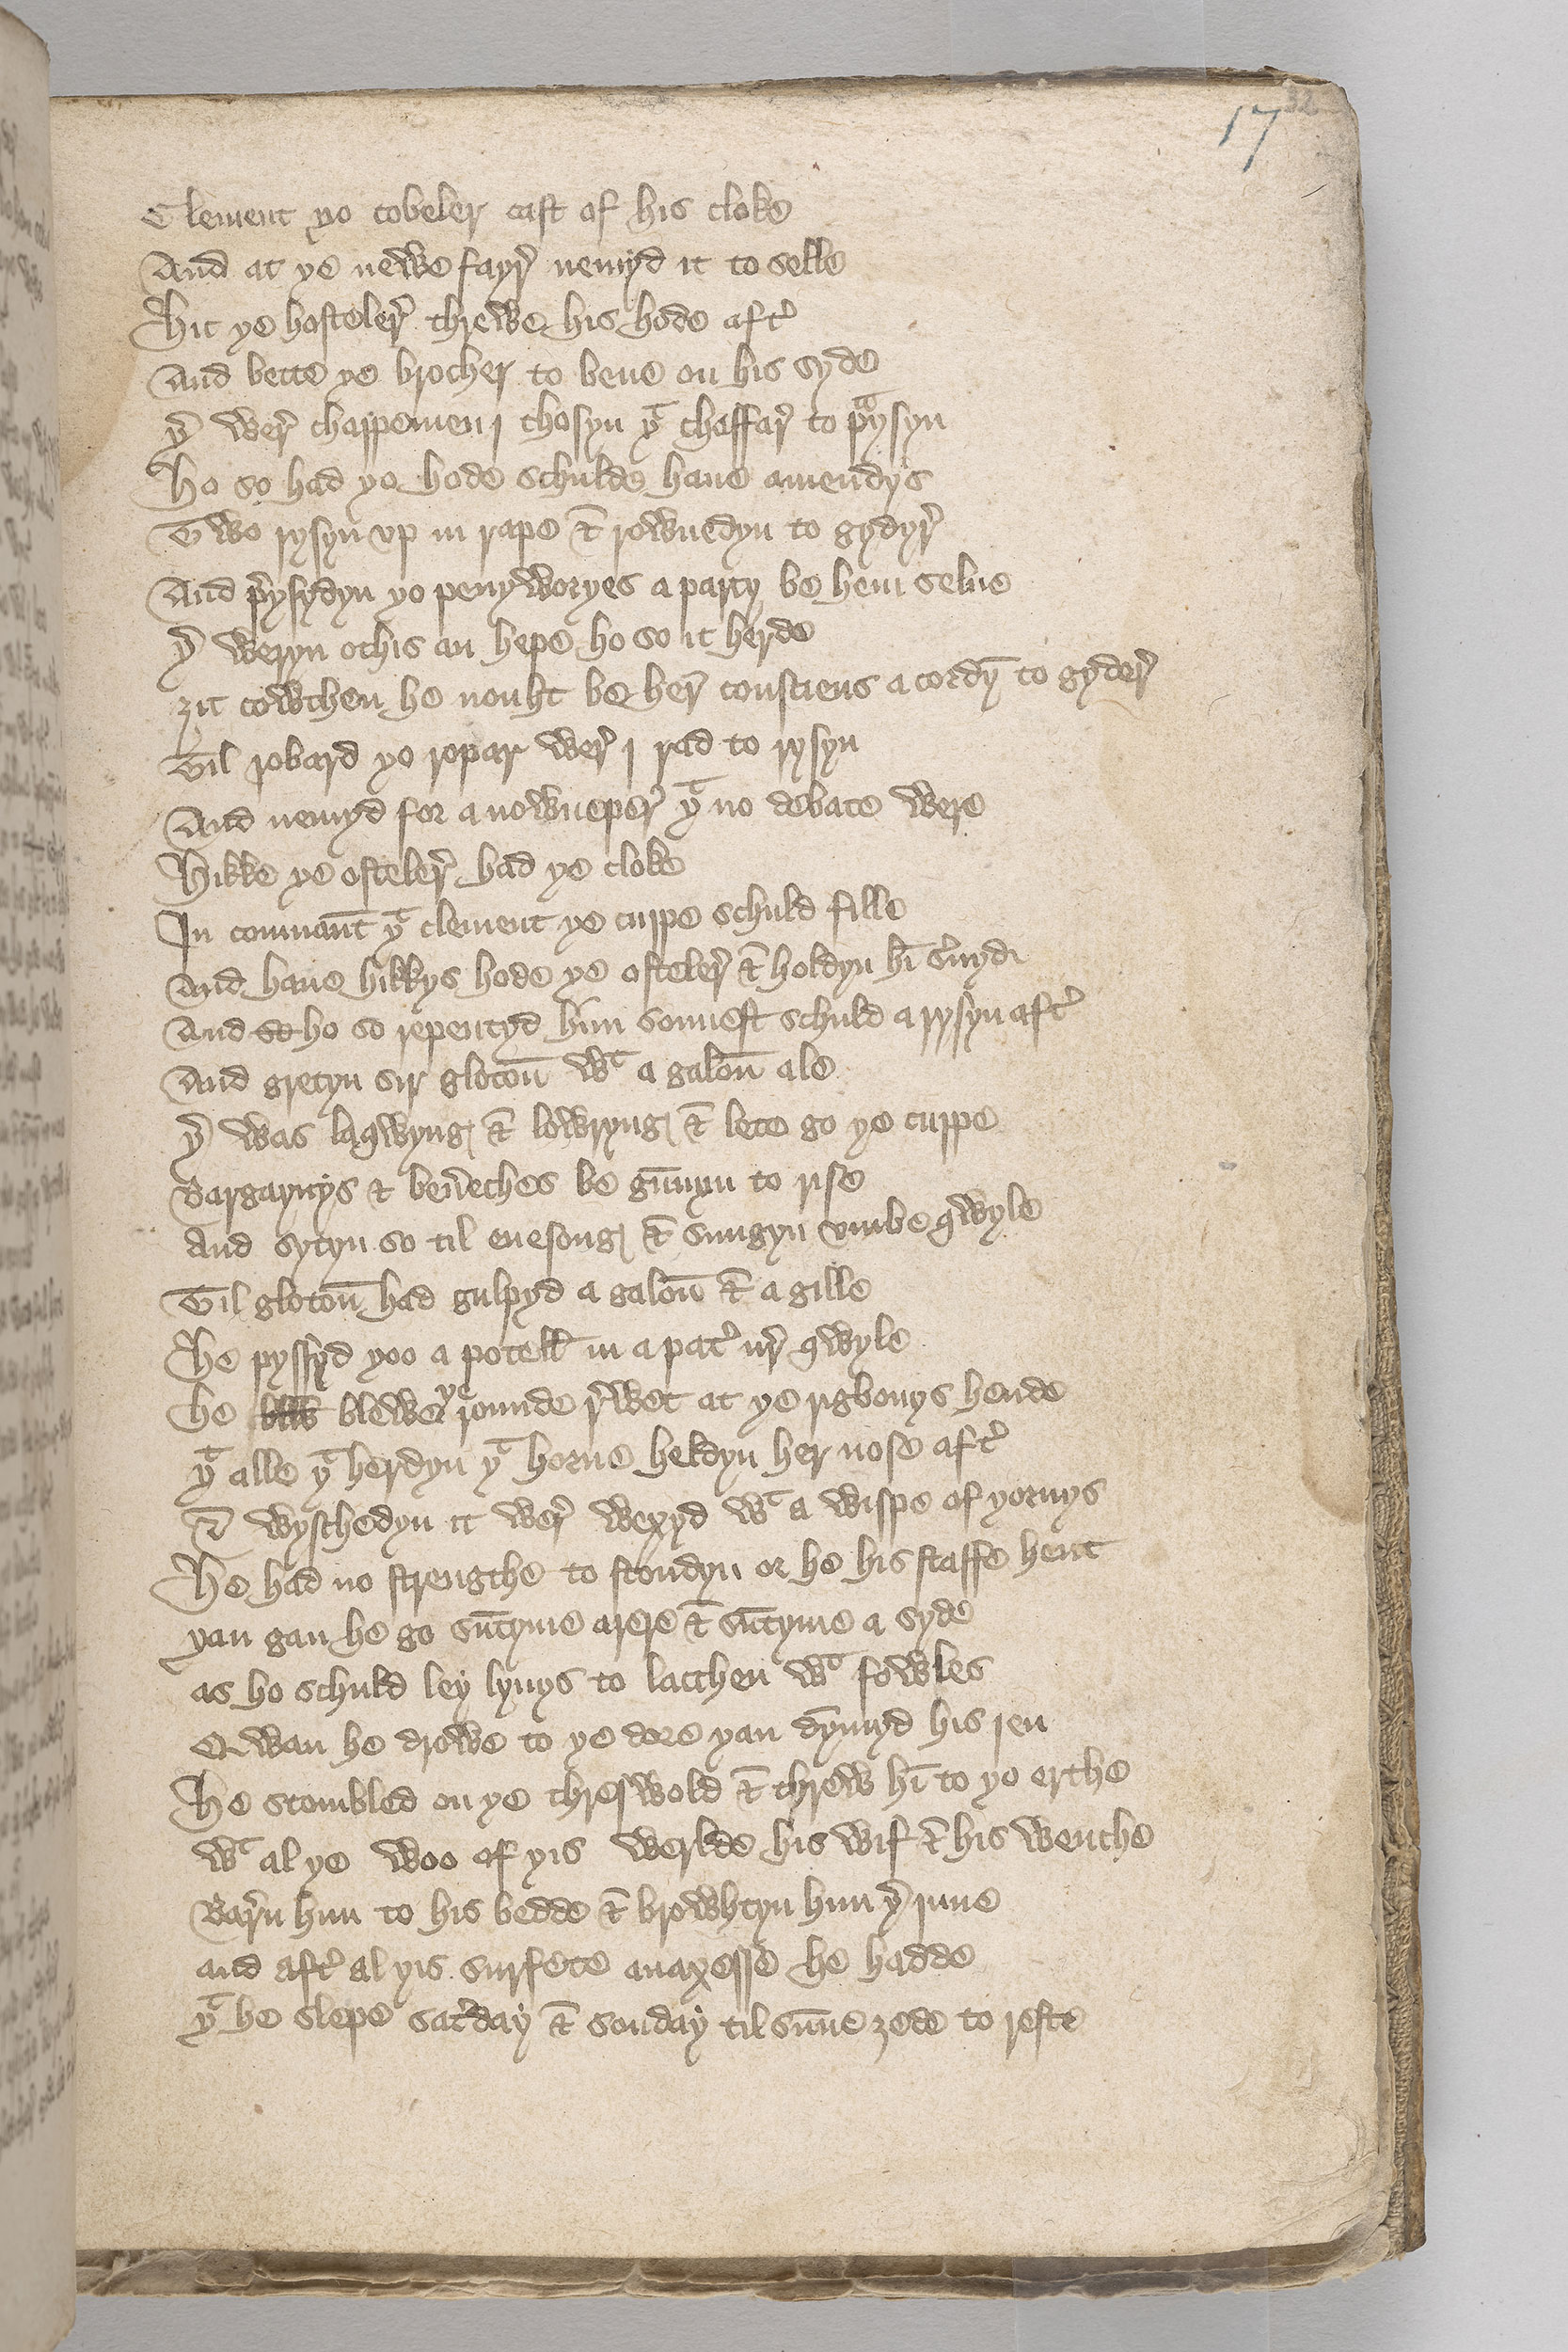 17 32
Clement ye cobeler cast of his cloke
And at ye newe fayr̛ nemyd it to selle
Hit ye hosteler̛ threwe his hode aft̛
And bette ye brocher to bene on his syde
y̛ wer̛ chappemen i chosyn yͭ chaffar̛ to pᵃysyn
Ho so had ye hode schulde haue amendys
Two rysyn vp in rape & rownedyn to gydyr̛
And p̛ysydyn ye penyworyes a party be hem selue
y̛ weryn othis an hepe ho so it herde
ȝit cowthen he nouht be her̛ consciens a cordyn̄ to gyder̛
Til robard ye ropar wer̛ i rad to rysyn
And nemyd for a nowneper̛ yͭ no debate were
Hikke ye osteler̛ had ye cloke
In comnant̄ yͭ clement ye cuppe schuld fille
And haue hikkys hode ye osteler̛ & holdyn hī s̛uyd
And ho so repentyd hym sonnest schuld a rysyn aft̛
And gretyn sir glotoun̄ wͭ a galoun̄ ale
y̛ was laqwyng & lowryng & lete go ye cuppe
Bargaynys & beưeches be gūnyn to rise
And sytyn so til euesong & sungyn vmbe qwyle
Til glotoun̄ had gulpyd a galoun̄ & a gille
He pyssyd yoo a potell̄ in a pat̛ nr̛ qwyle
he blewe ye rounde r̛wet at ye rigbonys hende
yͭ alle yͭ herdyn yͭ horne heldyn her nose aft̛
& wyschedyn it wer̛ wexyd wͭ a wispe of yornys
He had no strengthe to stondyn or he his staffe hent
yan gan he go sūtyme arere & sūtyme a syde
as ho schuld ley lynys to lacchen wͭ fowles
Qwan he drowe to ye dore yan dȳmyd his ien
He stombled on ye threswold & threw hī to ye erthe
wͭ al ye woo of yis werlde his wif & his wenche
Bar̛n him to his bedde & browhtyn him y̛ inne
and aft̛ al yis surfete an axesse he hadde
yͭ he slepe sat̛day & sonday til sūne ȝede to reste